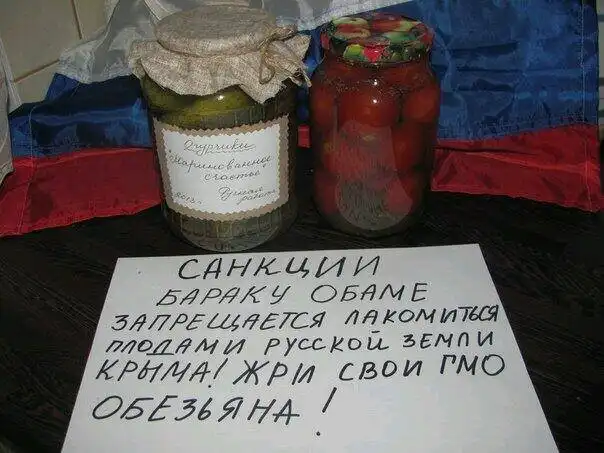 Огурчики
"Маринованное
счастье"
2013г.
Ручная
работа
САНКЦИИ
БАРАКУ ОБАМЕ
ЗАПРЕЩАЕТСЯ ЛАКОМИТЬСЯ
ПЛОДАМИ РУССКОЙ ЗЕМЛИ
КРЫМА! ЖРИ СВОИ ГМО
ОБЕЗЬЯНА!